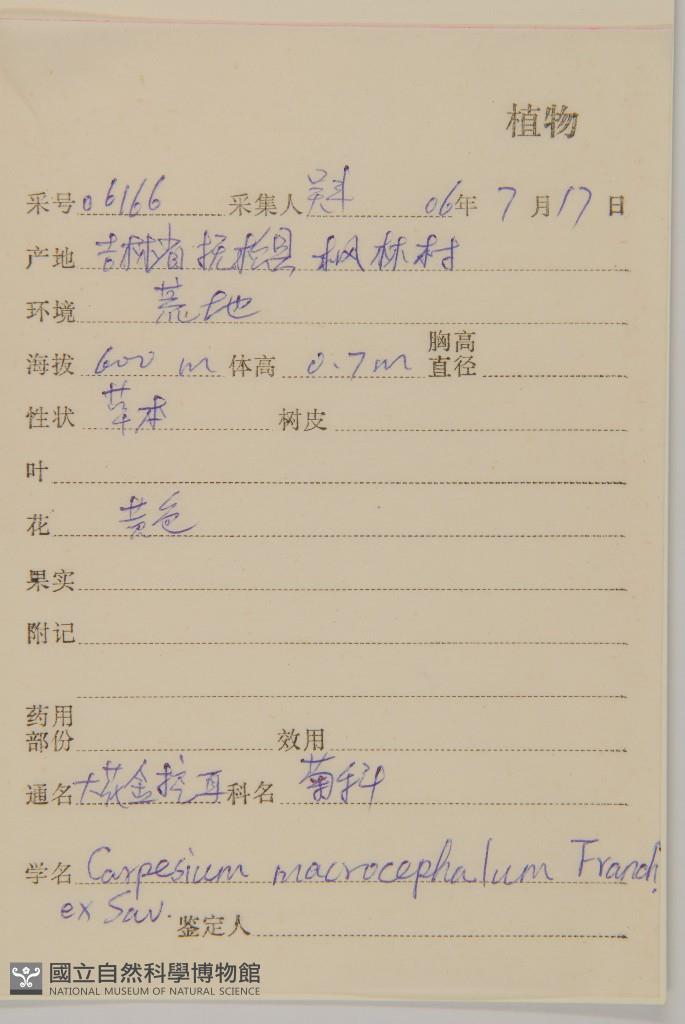 植物
采号 06166 采集人 06年 7月17日
产地 吉林省抚松县枫林村
环境 荒地
海拔 600 m 体高 0.7m 胸高直径
性状 草本 树皮
叶
花 黄色
果实
附记
药用部份 效用
通名 大花金挖耳 科名 菊科
学名 Carpesium macrocephalum Franch.
ex Sav. 鉴定人
國立自然科學博物館
NATIONAL MUSEUM OF NATURAL SCIENCE